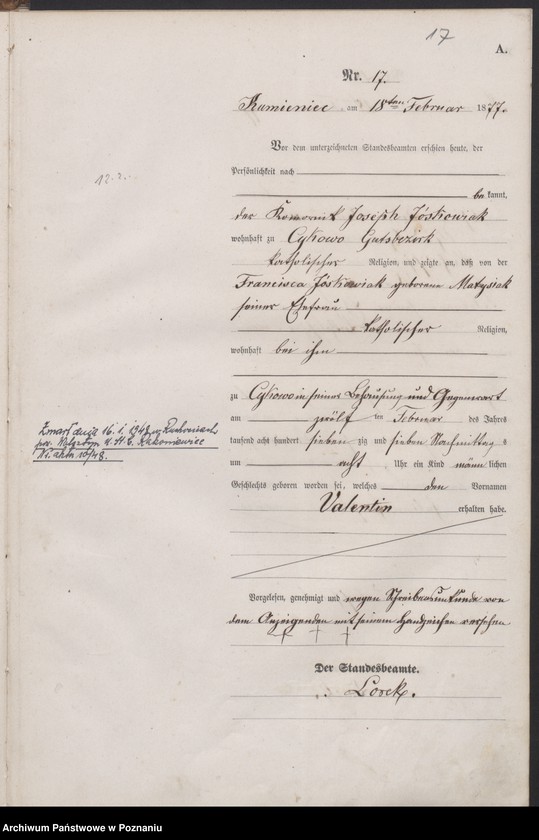 17
A.
Nr. 17.
Kamieniec am 18ten Februar 1877.
Vor dem unterzeichneten Standesbeamten erschien heute, der
Persönlichkeit nach
bekannt,
der Komornik Joseph Jóskowiak
wohnhaft zu Cykowo Gutsbezirk
katholischer Religion, und zeigte an, daß von der
Francisca Jóskowiak geborene Matysiak
seiner Ehefrau
katholischer Religion,
wohnhaft bei ihm
zu Cykowo in seiner Behausung und Gegenwart
am zwölf ten Februar des Jahres
tausend acht hundert sieben zig und sieben Nachmittag s
um acht Uhr ein Kind männ lichen
Geschlechts geboren worden sei, welches den Vornamen
Valentin erhalten habe.
Zmarł dnia 16.1.1948 w
pow. Wolsztyn U.S.C. Rakoniewice
Nr. aktu 10/48.
Vorgelesen, genehmigt und wegen Schreibensunkunde von
dem Anzeigenden mit seinem Handzeichen versehen
+ + +
Der Standesbeamte.
Lorck.
Archiwum Państwowe w Poznaniu